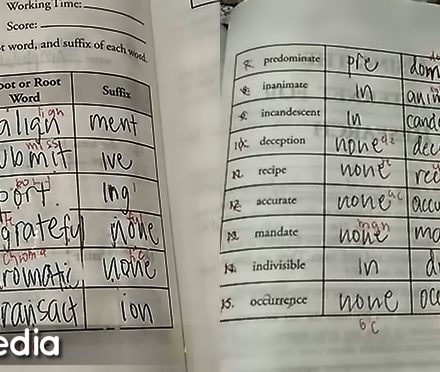 Working Time:
Score:
t word, and suffix of each word.
oot or Root
Word
Suffix
align
ign
ment
ubmit
miss
ive
ort.
ing
grateful
none
romatic
chroma
none
ransact
ion
edia
predominate
pre
dom
inanimate
in
anim
incandescent
in
cand
10. deception
none
de
dec
11. recipe
none
rec
12. accurate
none
ac
accu
13. mandate
none
man
ma
14. indivisible
in
di
15. occurrence
none
occ
oc